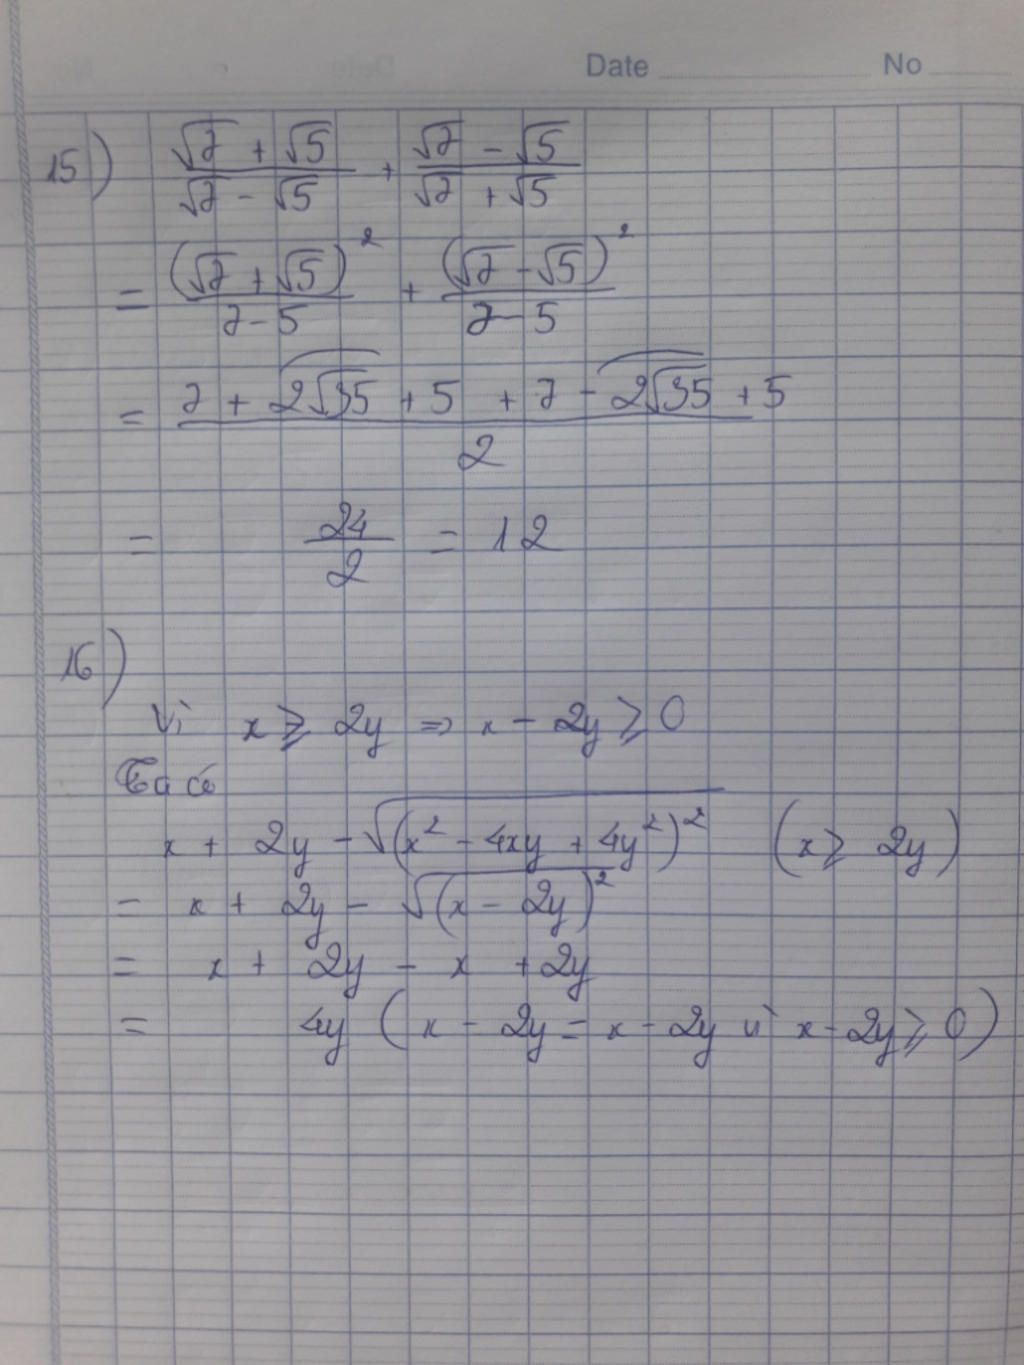 Date No
15) (√7 + √5)/(√7 - √5) + (√7 - √5)/(√7 + √5)
= (√7 + √5)²/(7 - 5) + (√7 - √5)²/(7 - 5)
= (7 + 2√35 + 5 + 7 - 2√35 + 5)/2
= 24/2 = 12
16)
Vì x ⩾ 2y => x - 2y ⩾ 0
Ta có
x + 2y - √(x² - 4xy + 4y²)² (x ⩾ 2y)
= x + 2y - √(x - 2y)²
= x + 2y - x + 2y
= 4y (x - 2y = x - 2y vì x - 2y ⩾ 0)